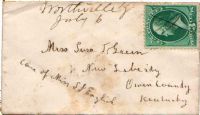 Worthville Ky
July 6
Miss Susa T Green
New Liberty
Owen County
Kentucky
Care of Miss S J English